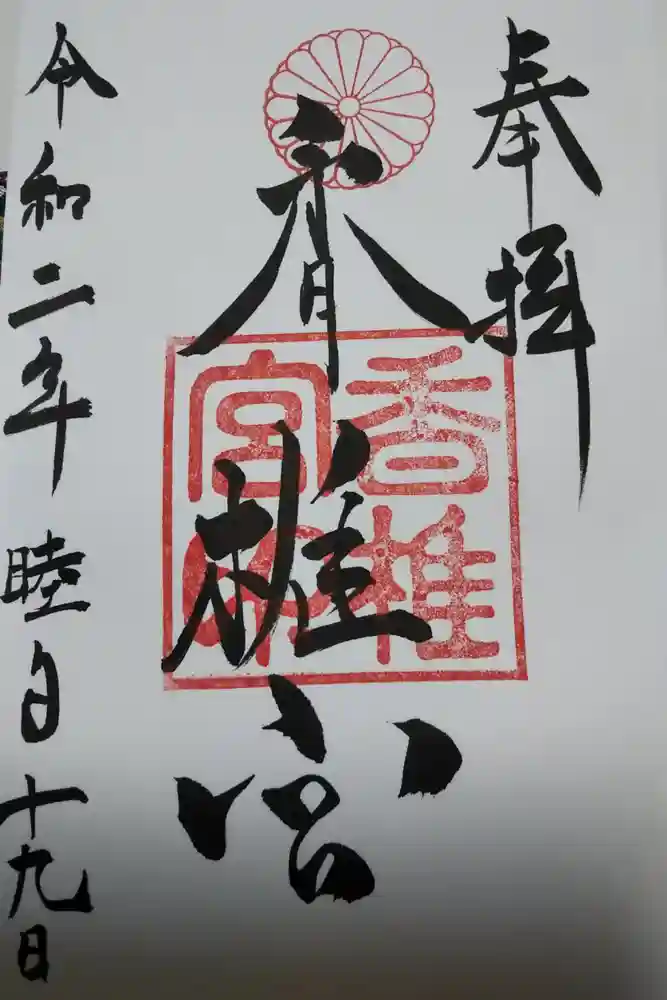 奉拝
香椎宮
香椎
宮印
令和二年睦月十九日